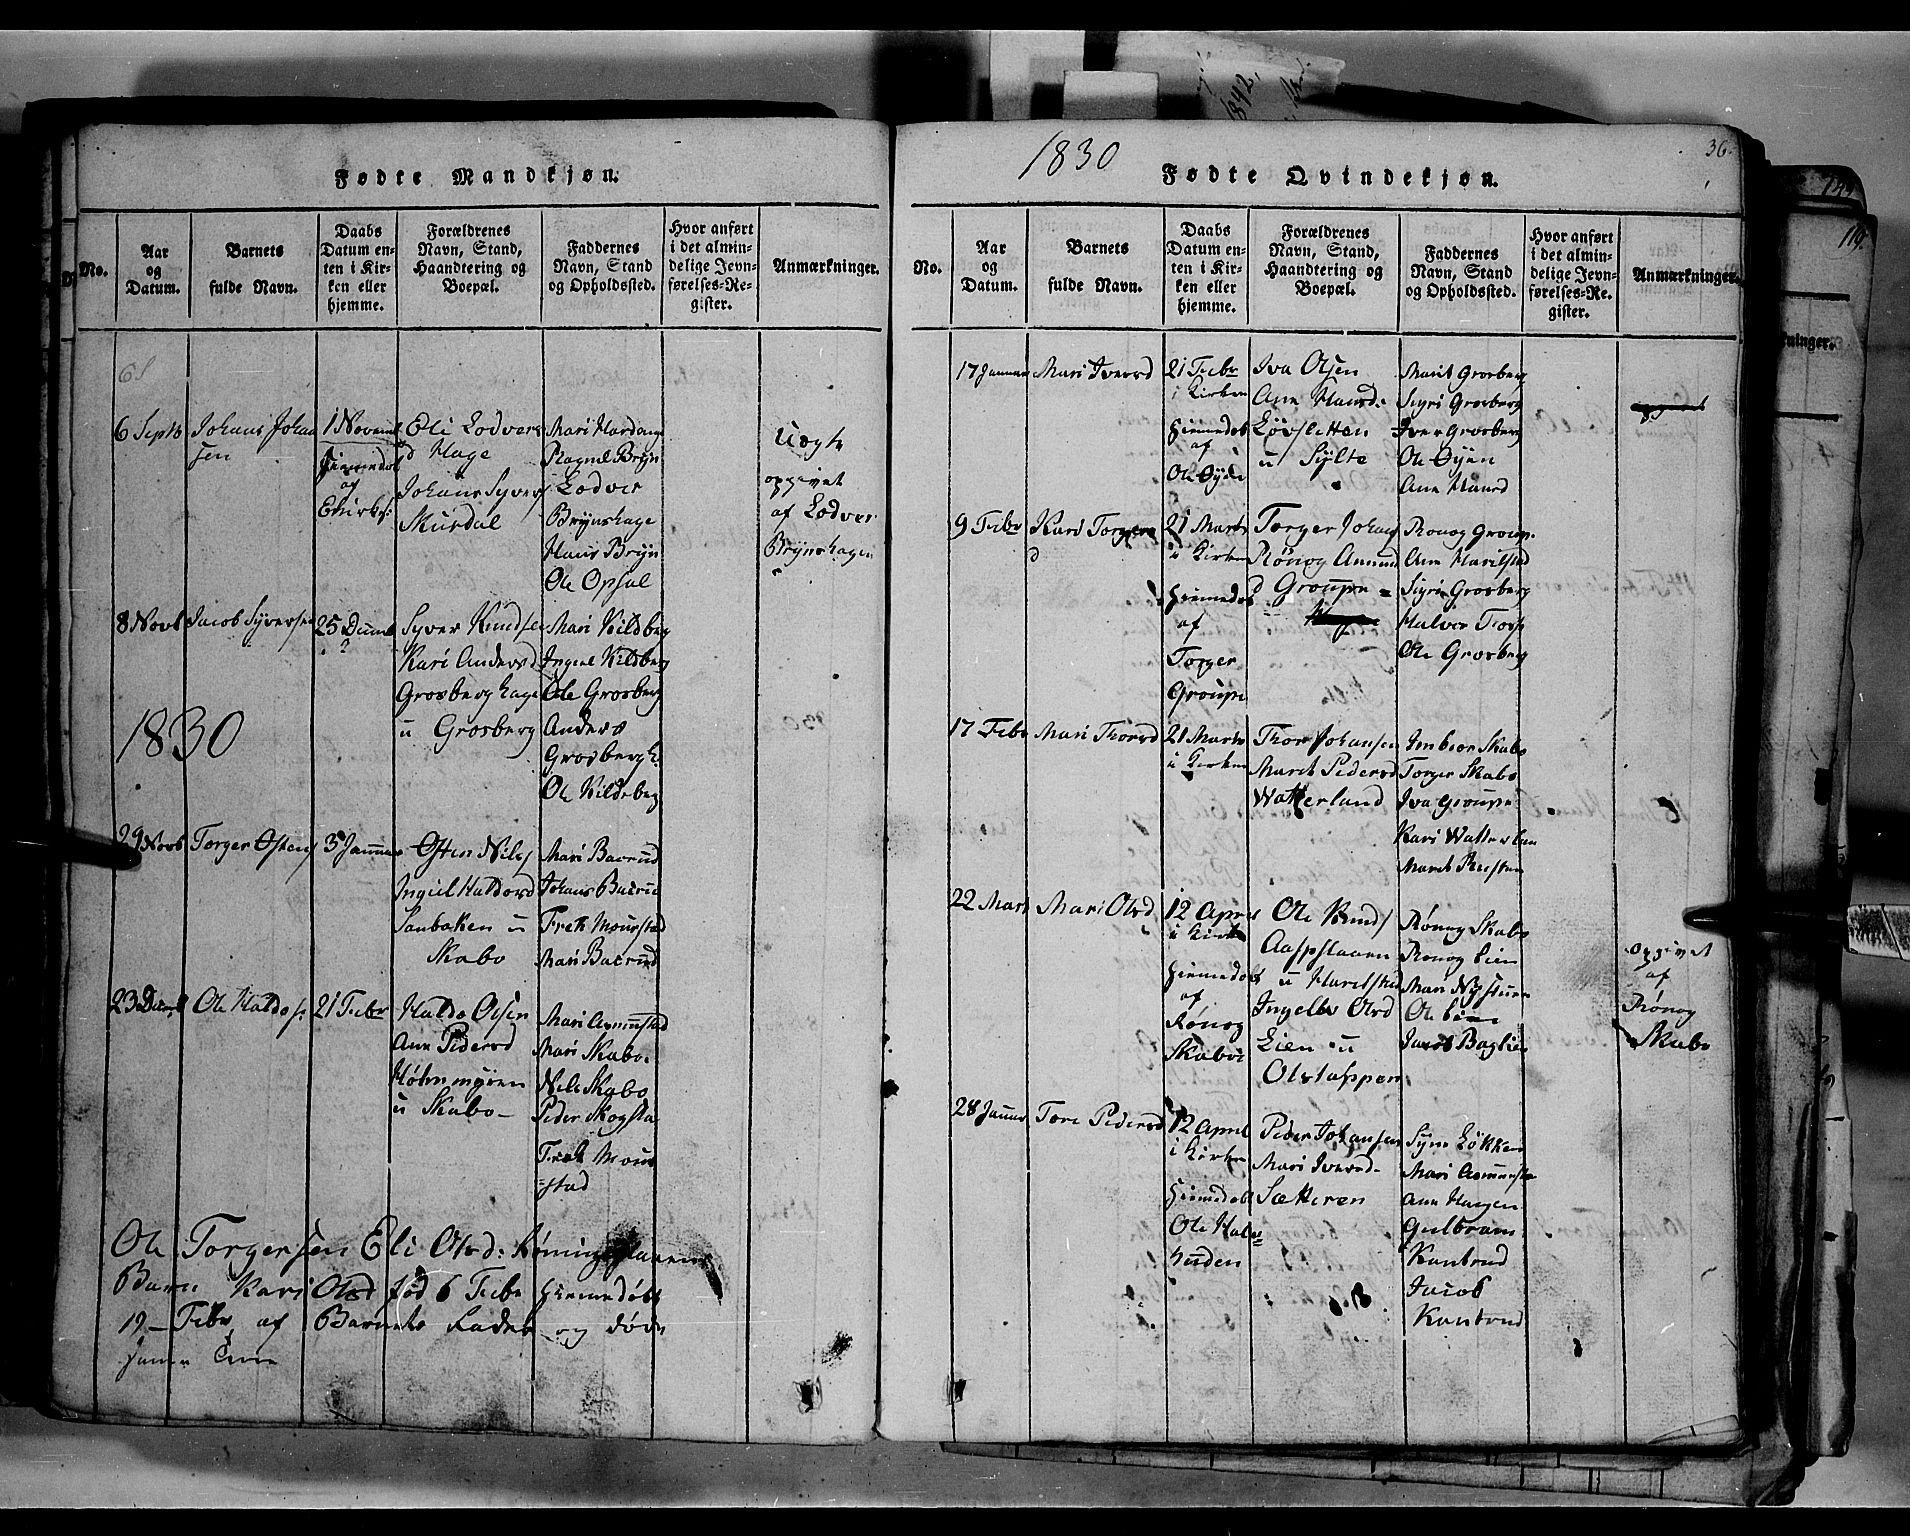 Fødte Mandkjøn.
No.
Aar
og
Datum.
Barnets
fulde Navn.
Daabs
Datum en-
ten i Kir-
ken eller
hjemme.
Forældrenes
Navn, Stand,
Haandtering og
Boepæl.
Faddernes
Navn, Stand
og Opholdssted.
Hvor anført
i det almin-
delige Jevn-
førelses-Re-
gister.
Anmærkninger.
6 Septb
Johans Johan
sen
1 Novemb
Hiemedøbt
af
Eli Lodvers
d Hage
Johans Syvers
Skurdal
Mari Hardang
Ragnil Bryn
Lodver
Brynshage
Hans Bryn
Ole Opsal
Uægte
opgivet
af Lodver
Brynshagen
8 Novb
Jacob Syversen
25 Decemb
Syver Knudsen
Kari Andersd
Grosberg hage
u Grosberg
Mari Kildberg
Ingeri Kildberg
Ole Grosberg
Anders
Grosberg h.
Ole Kildeberg
1830
29 Novb
Torger Østens
3 Januar
Østen Nils
Ingiel Haldord
Sanbaken u
Skabo
Mari Bacrud
Johans Bacrud
Frek Mourstad
Mari Bacrud
23 Decemb
Ole Haldos.
21 Febr
Haldo Olsen
Ann Pedersd
Holmmyren
u Skabo
Mari Asmunstad
Mari Skabo
Nils Skabo
Peder Skogsta
Frek Mour
stad
Ole Torgersen Eli Olsd: Røningslaaens
Barn Kari Olsd fød 6 Febr hiemedøbt
19 Febr af Barnets Fader og døde
1830
Fødte Qvindekjøn.
36.
No.
Aar
og
Datum.
Barnets
fulde Navn.
Daabs
Datum en-
ten i Kir-
ken eller
hjemme.
Forældrenes
Navn, Stand,
Haandtering og
Boepæl.
Faddernes
Navn, Stand
og Opholdssted.
Hvor anført
i det almin-
delige Jevn-
førelses-Re-
gister.
Anmærkninger.
17 Januar
Mari Iversd
21 Febr
i Kirken
Hiemedøbt
af
Ole Øyde
Iva Olsen
Ann Hansd:
Løvsletten
u Sylte
Marit Grosberg
Sigri Grosberg
Iver Grosberg
Ole Øyen
Ann Hansd
9 Febr
Kari Torgers
d
21 Marts
i Kirken
Hiemedøbt
af
Torger
Groupe
Torger Johans
Rønog Amund
d Groupe
Ronog Groupe
Ann Haritstad
Sigri Grosberg
Halvor Forsp
Ole Grosberg
17 Febr
Mari Thorsd
21 Marts
i Kirken
Thor Johansen
Marit Pedersd
Watterland
Imbior Skabo
Torger Skabo
Iva Groupe
Kari Watterlan
Marit Reisten
22 Mart
Mari Olsd
12 April
i Kirk
Hiemedøbt
af
Rønog
Skaboe
Ole Knuds
Aasپslaaen
u Haritstad
Ingelbr Olsd
Lien u
Olstappen
Rønog Skabo
Ronog Lien
Mari Nystuen
Ole Lien
Jacob Baglien
opgivet
af
Rønog
Skabo
28 Januar
Tore Pedersd
12 April
i Kirken
Hiemedøbt
Peder Johansen
Mari Iversd
Sætteren
Mari Asmunsta
Ann Hagen
Gulbrans
Kanbrud
Jacob
Kanbrud
1842.
119.